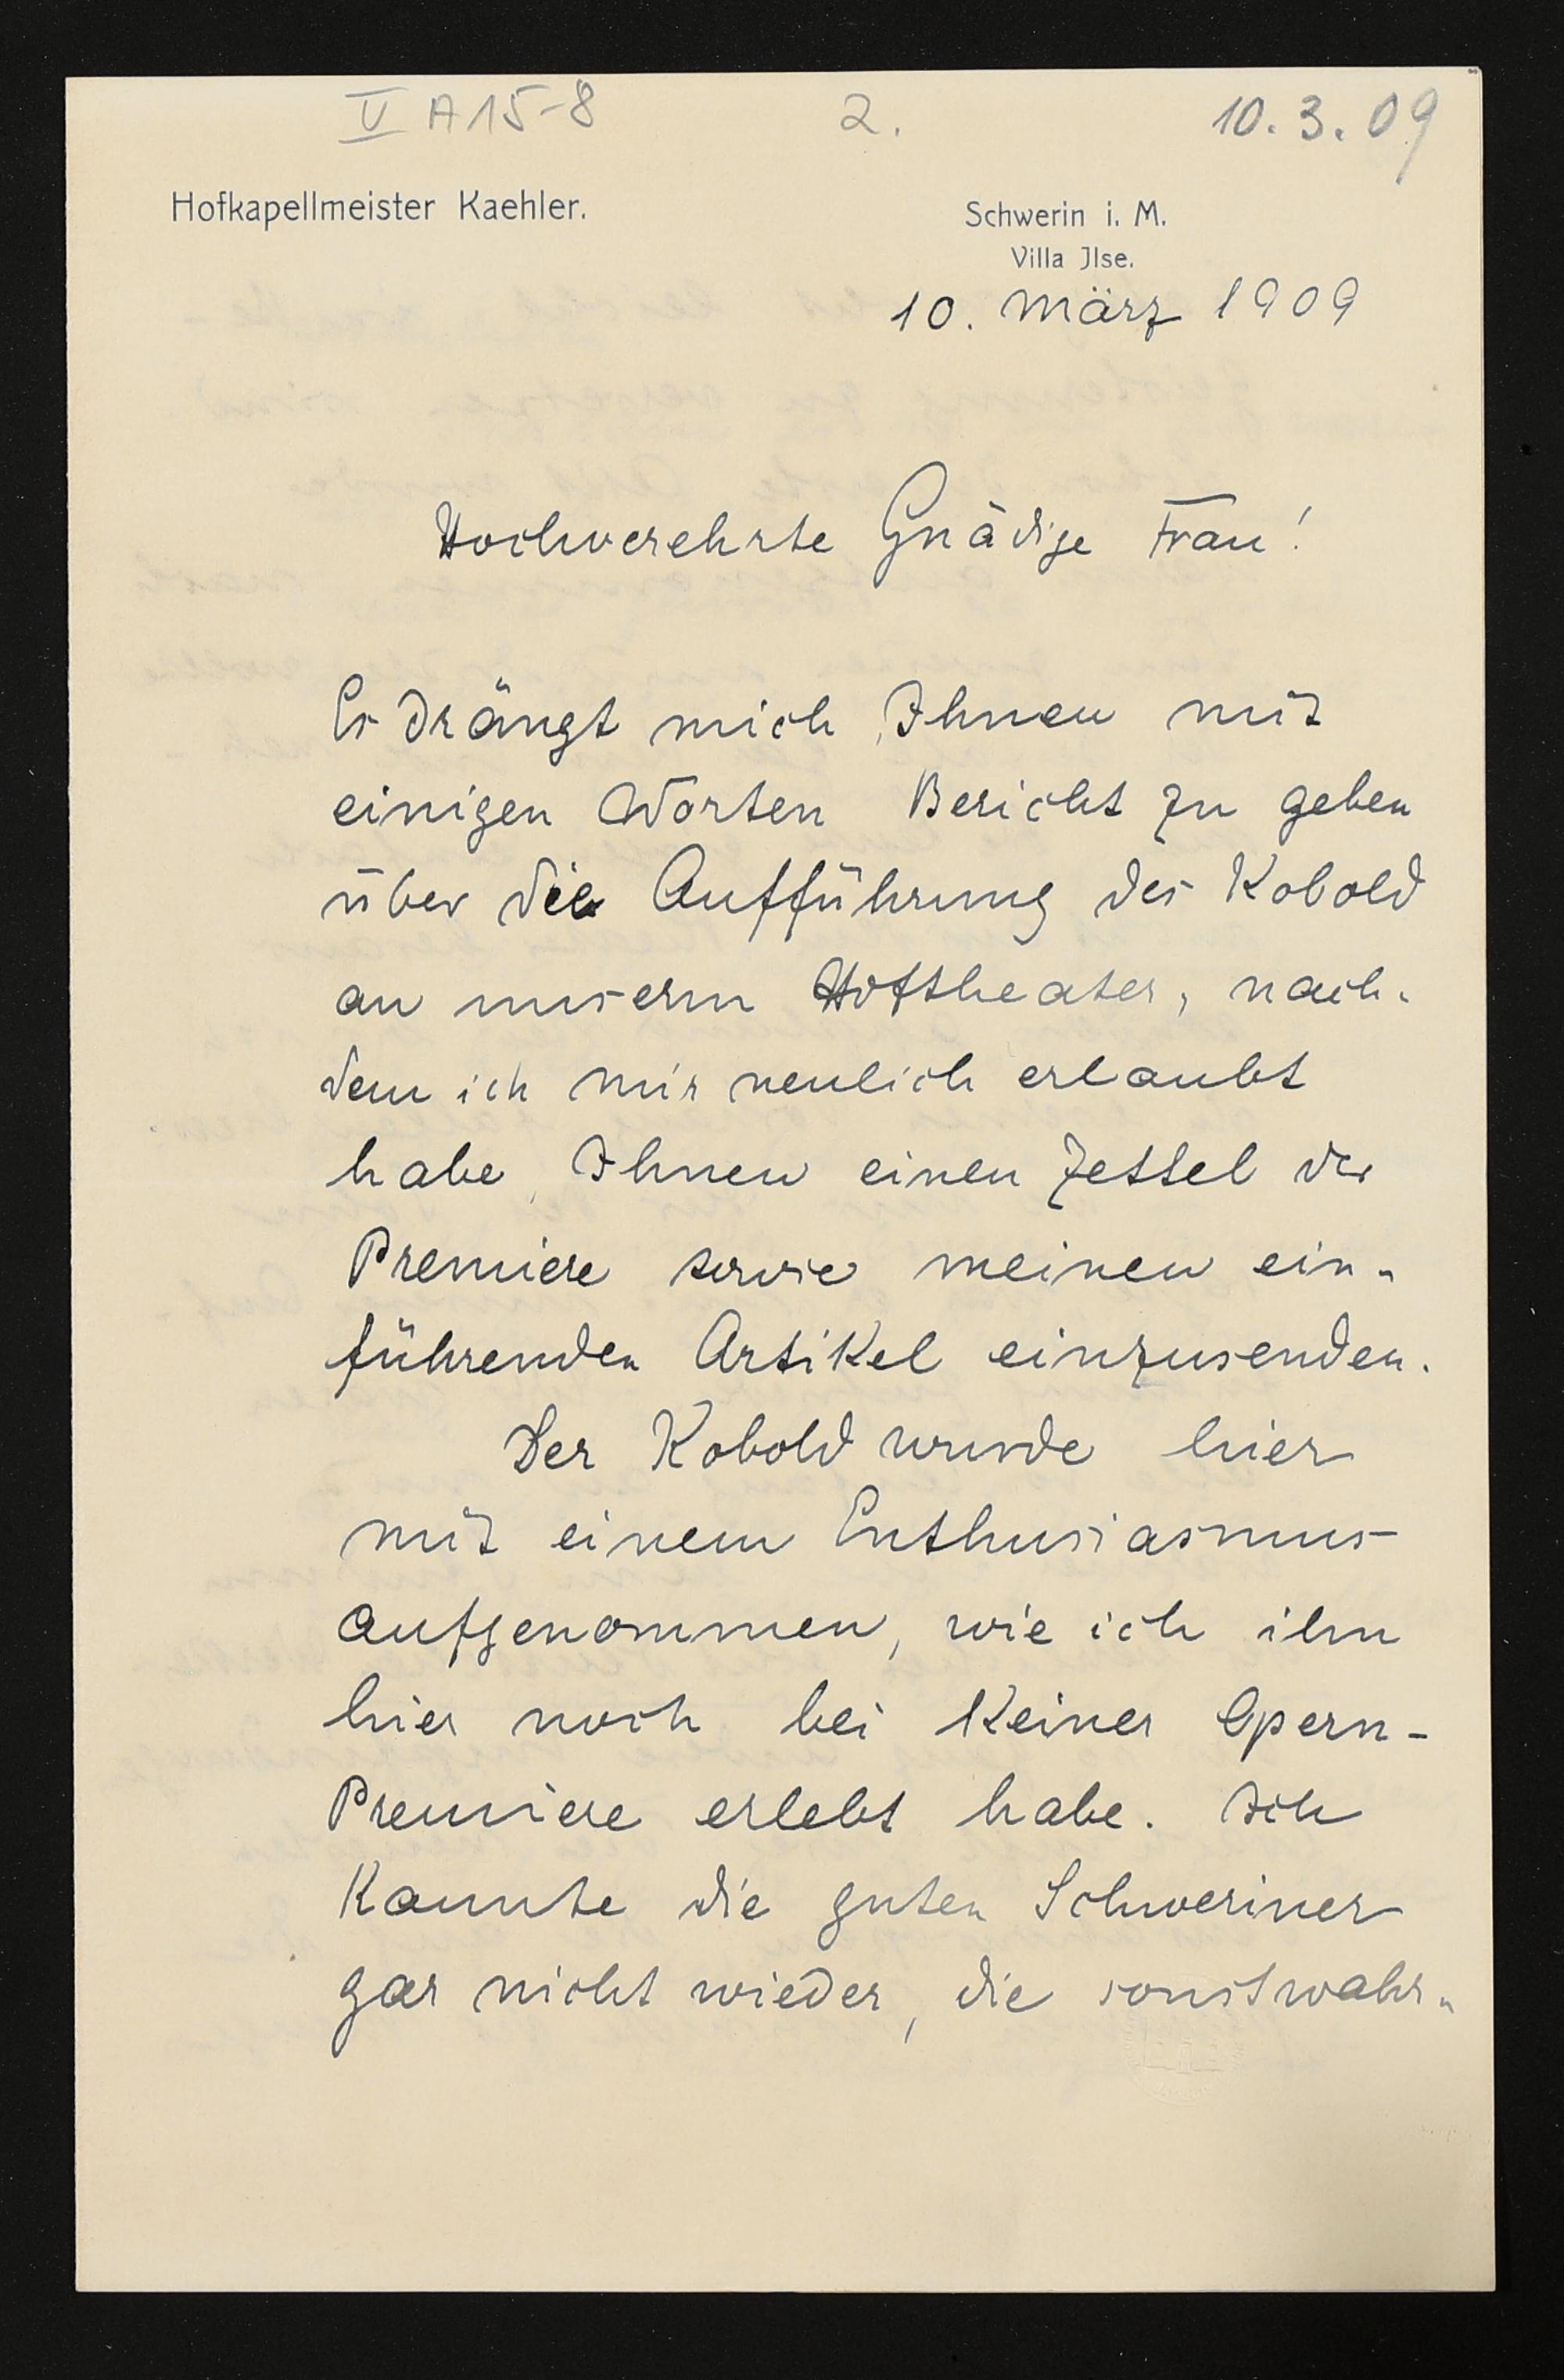 V A 15-8 2. 10.3.09
Hofkapellmeister Kaehler.
Schwerin i. M.
Villa Jlse.
10. März 1909
Hochverehrte Gnädige Frau!
Es drängt mich, Ihnen mit
einigen Worten Bericht zu geben
über die Aufführung des Kobold
an unserm Hoftheater, nach-
dem ich mir neulich erlaubt
habe, Ihnen einen Zettel der
Premiere sowie meinen ein-
führenden Artikel einzusenden.
Der Kobold wurde hier
mit einem Enthusiasmus
aufgenommen, wie ich ihn
hier noch bei keiner Opern-
Premiere erlebt habe. Ich
kannte die guten Schweriner
gar nicht wieder, die sonst wahr-